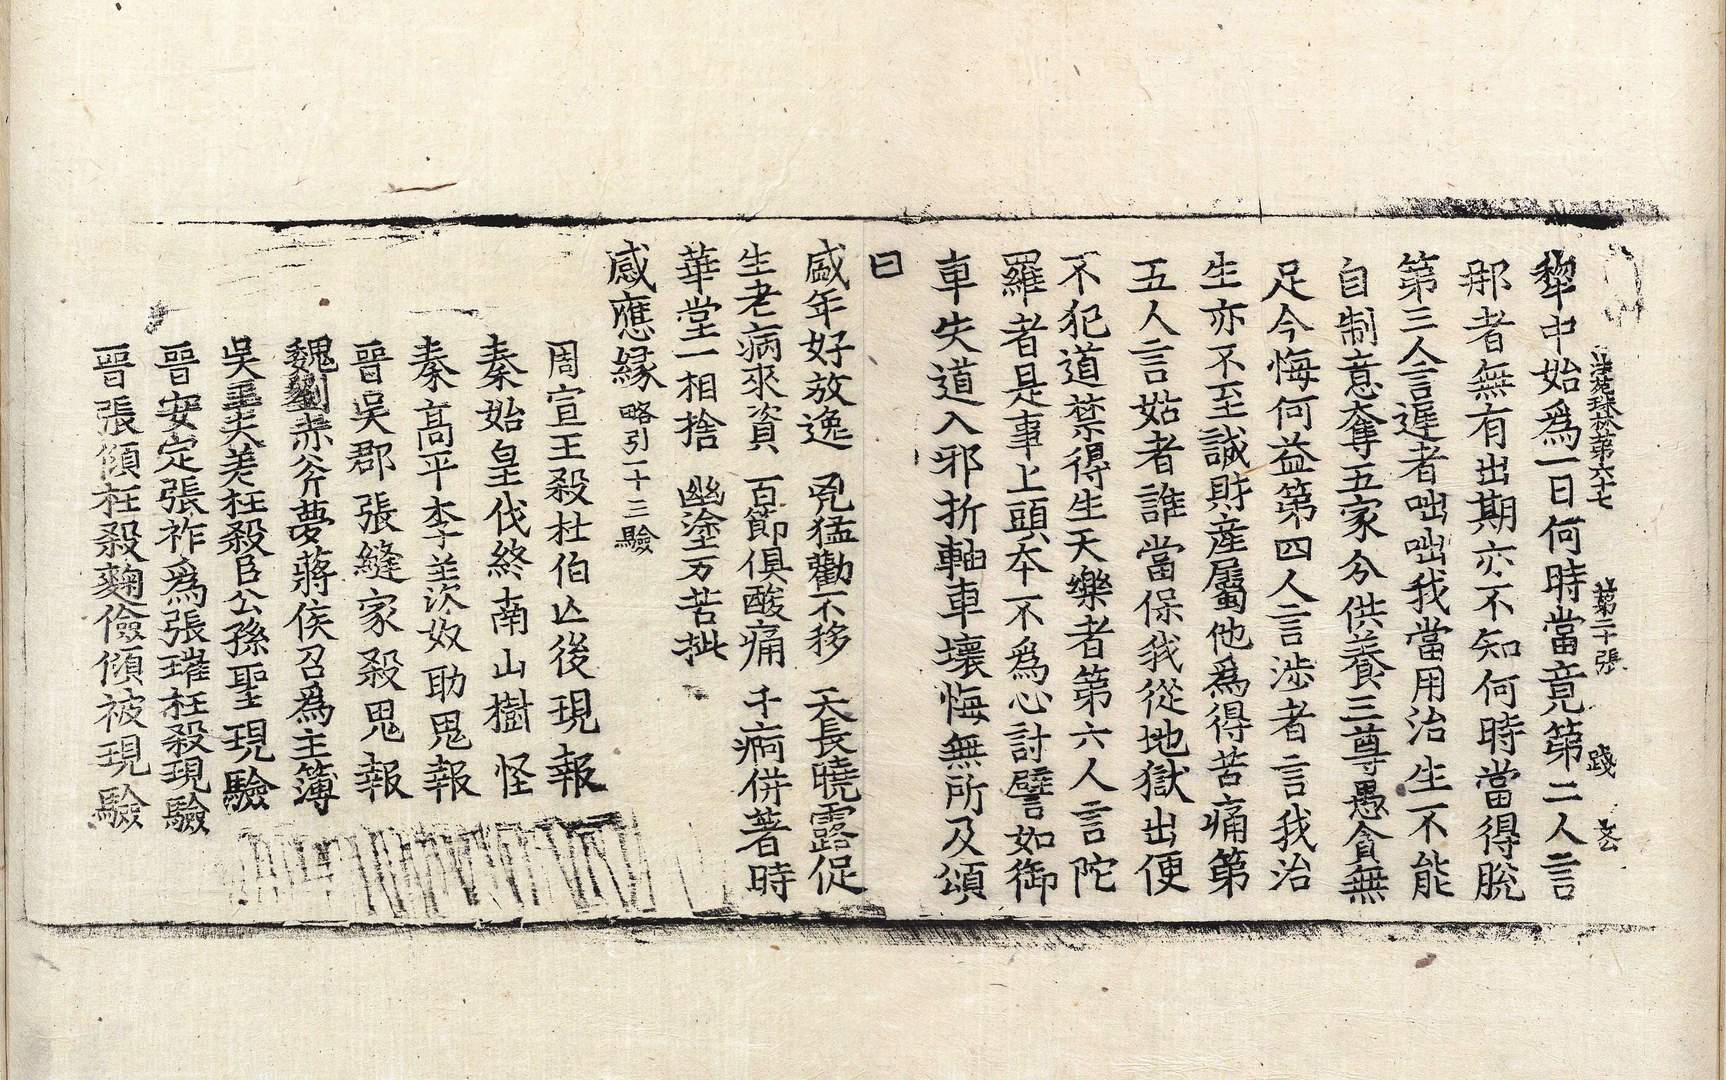 法苑珠林第六十七　第二十張　踐
犂中始爲一日何時當竟第二人言
那者無有出期亦不知何時當得脫
第三人言遲者咄咄我當用治生不能
自制意奪五家分供養三尊愚貪無
足今悔何益第四人言涉者言我治
生亦不至誠財産屬他爲得苦痛第
五人言姑者誰當保我從地獄出便
不犯道禁得生天樂者第六人言陀
羅者是事上頭本不爲心討譬如御
車失道入邪折軸車壞悔無所及頌
曰
盛年好放逸　兇猛勸不移　天長曉露促
生老病來資　百節俱酸痛　千痾併著時
華堂一相捨　幽塗万苦批
感應緣略引一十三驗
周宣王殺杜伯亡後現報
秦始皇伐終南山樹怪
秦高平李羨次奴助鬼報
晉吳郡張縫家殺鬼報
魏劉赤斧夢蔣侯召爲主簿
吳王夫差枉殺臣公孫聖現驗
晉安定張祚爲張瓘枉殺現驗
晉張傾枉殺麴儉傾被現驗